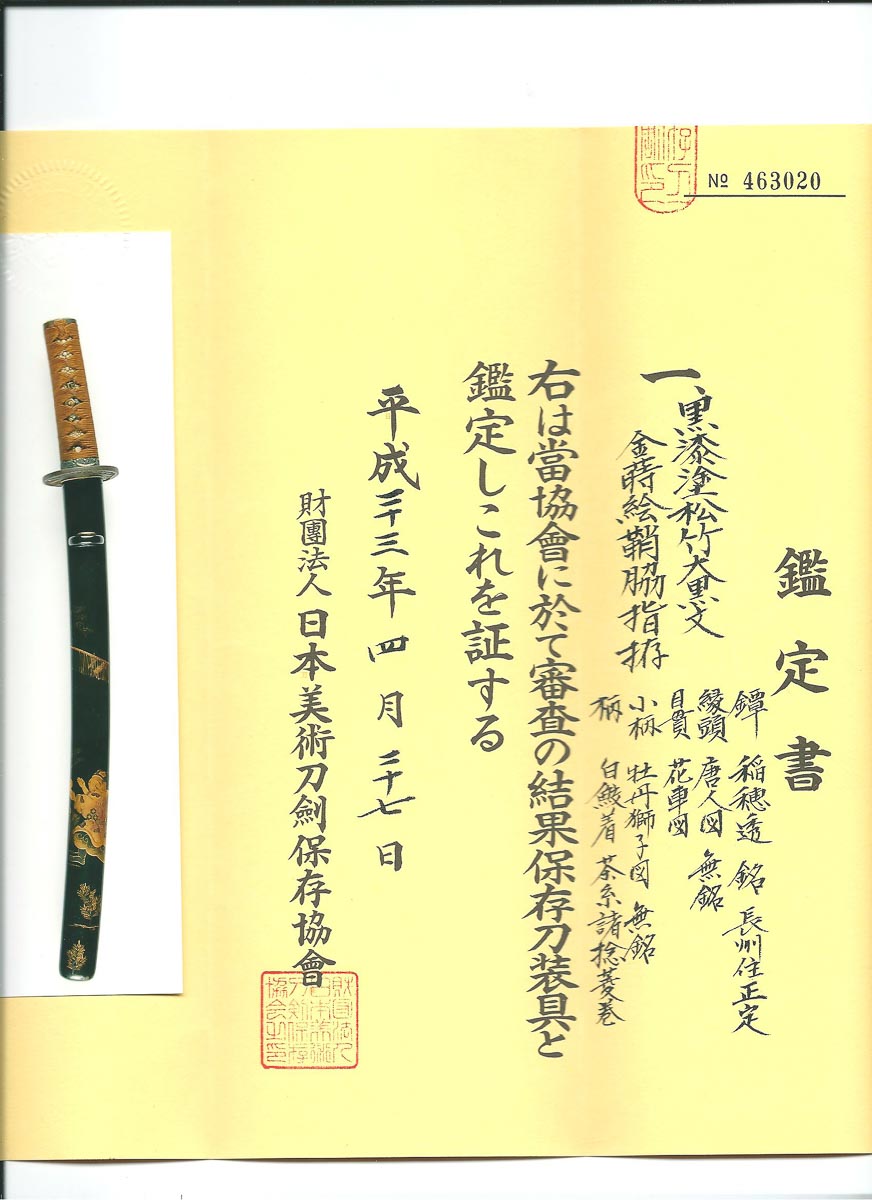 No 463020
鑑定書
一、黒漆塗松竹大黒文
金蒔絵鞘脇指拵
鐔 稲穂透 銘 長州住正定
縁頭 唐人図 無銘
目貫 花車図
小柄 牡丹獅子図 無銘
柄 白鮫着 茶糸諸捻菱巻
右は當協會に於て審査の結果保存刀装具と
鑑定しこれを証する
平成二十三年四月二十七日
財團法人日本美術刀劍保存協會
財団法人
日本美術
刀剣保存
協会之印